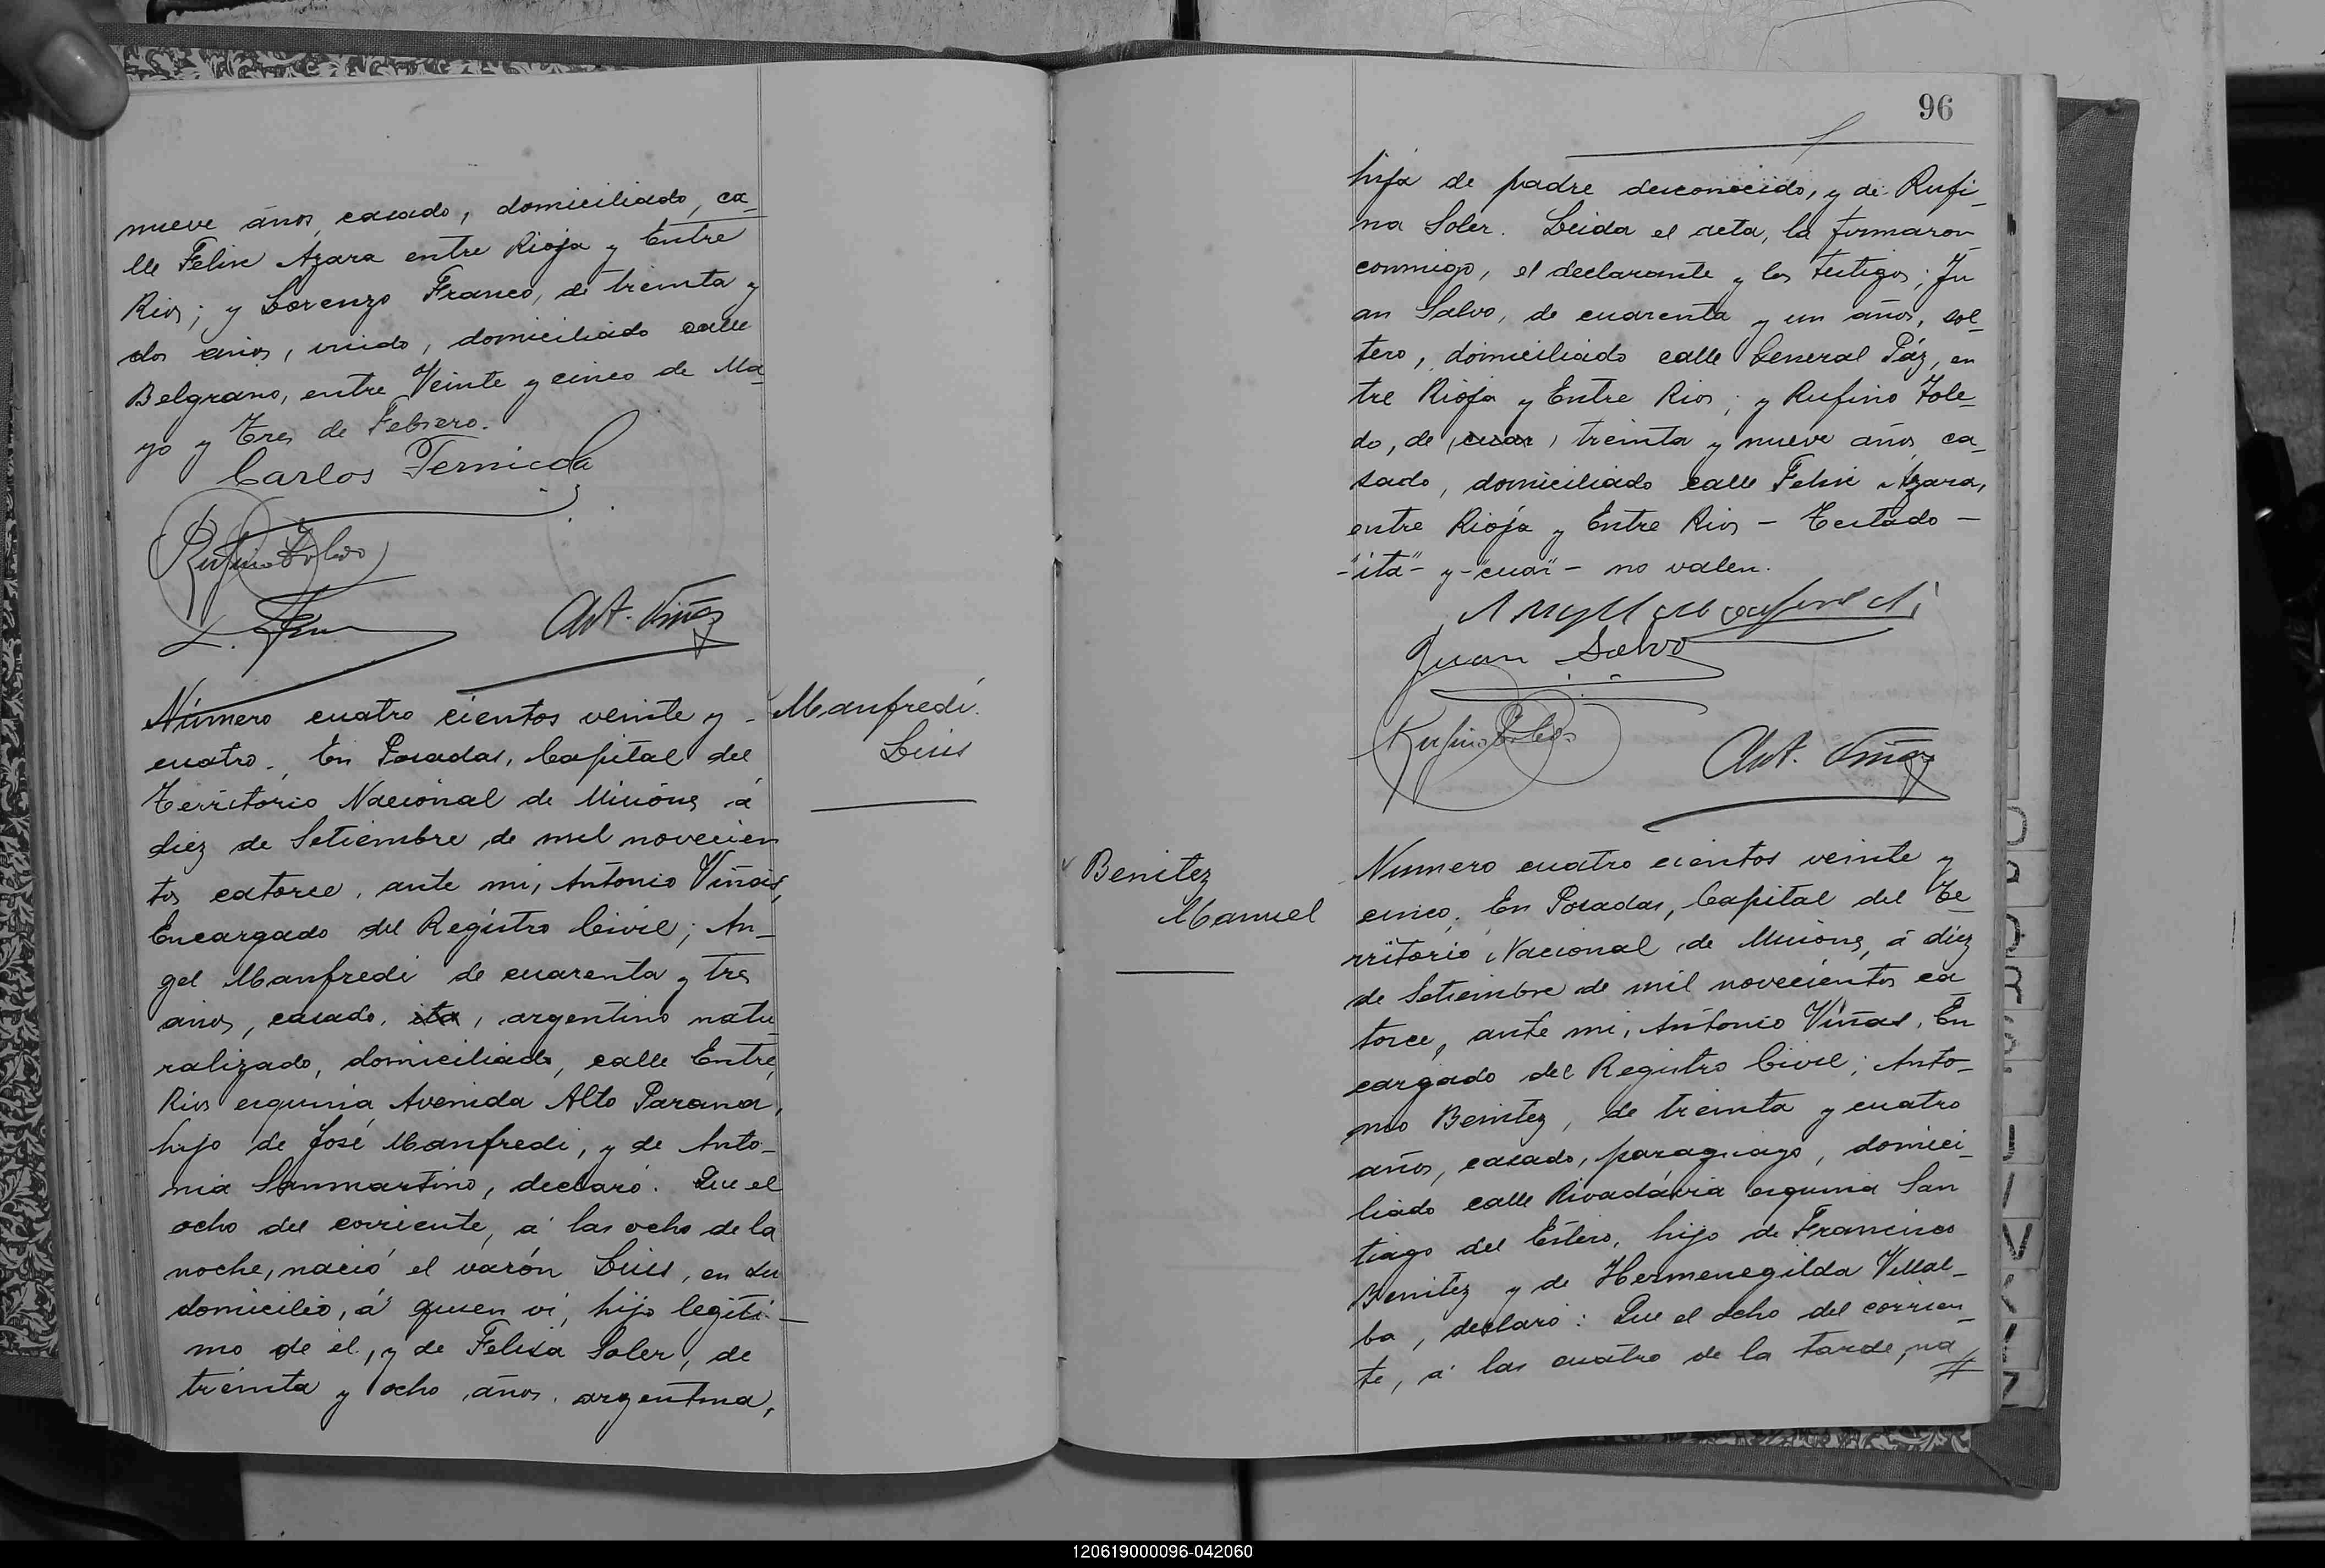 nueve años, casado, domiciliado, ca_
lle Felix Azara entre Rioja y Entre
Rios; y Lorenzo Franco, de treinta y
dos años, viudo, domiciliado calle
Belgrano, entre Veinte y cinco de Ma_
yo y Tres de Febrero.
Carlos
Rufino Toledo
Ant. Viñas
Número cuatro cientos veinte y
cuatro. En Posadas, Capital del
Territorio Nacional de Misiones á
diez de Setiembre de mil novecien
tos catorce, ante mi, Antonio Viñas,
Encargado del Registro Civil; An_
gel Manfredi de cuarenta y tres
años, casado, ita, argentino natu_
ralizado, domiciliado, calle Entre
Rios esquina Avenida Alto Parana,
hijo de José Manfredi, y de Anto_
nia Sanmartino, declaró: Que el
ocho del corriente, á las ocho de la
noche, nació el varón Luis, en su
domicilio, á quien vi, hijo legíti_
mo de él, y de Felisa Soler, de
treinta y ocho años, argentina,
Manfredi
Luis
96
hija de padre desconocido, y de Rufi_
na Soler. Leida el acta, la firmaron
conmigo, el declarante y los testigos; Ju
an Salvo, de cuarenta y un años, sol_
tero, domiciliado calle General Páz, en
tre Rioja y Entre Rios; y Rufino Tole_
do, de (cuar) treinta y nueve años, ca_
sado, domiciliado calle Felix Azara,
entre Rioja y Entre Rios – Testado –
-"ita"- y -"cuar"- no valen.
Juan Salvo
Rufino Toledo
Ant. Viñas
Benitez
Manuel
Numero cuatro cientos veinte y
cinco. En Posadas, Capital del Te_
rritorio Nacional de Misiones, á diez
de Setiembre de mil novecientos ca
torce, ante mi, Antonio Viñas, En
cargado del Registro Civil; Anto_
nio Benitez, de treinta y cuatro
años, casado, paraguayo, domici_
liado calle Rivadavia esquina San
tiago del Estero, hijo de Francisco
Benitez y de Hermenegilda Villal_
ba, declaró: Que el ocho del corrien_
te, á las cuatro de la tarde, na
#
120619000096-042060